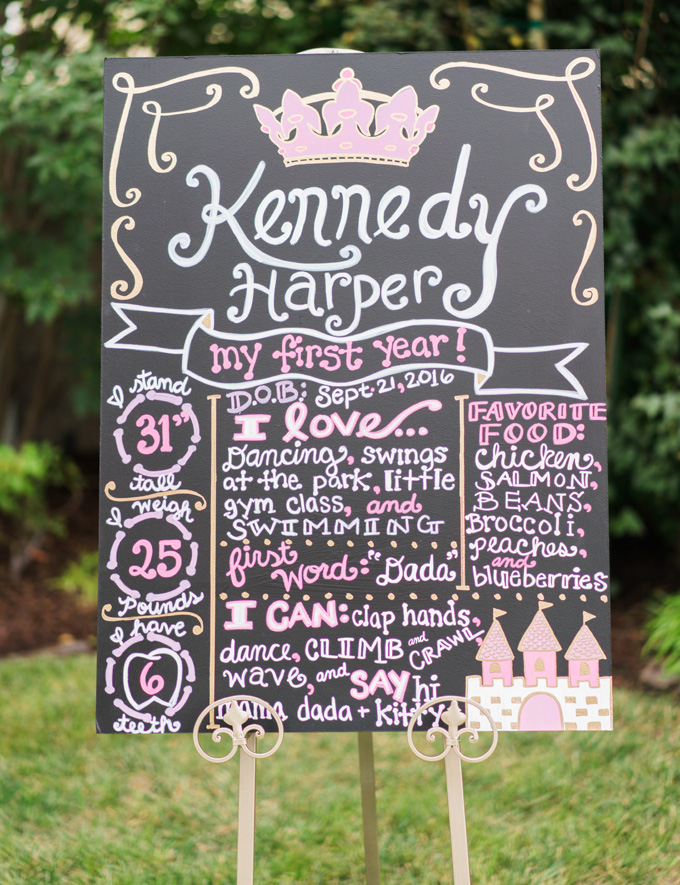 Kennedy
Harper
my first year!
D.O.B: Sept. 21, 2016
stand
31"
tall
weigh
25
pounds
have
6
teeth
I love...
Dancing, swings
at the park, little
gym class, and
SWIMMING
first
word: "Dada"
I CAN: clap hands,
dance, CLIMB and CRAWL
wave, and SAY hi
mama dada + kitty
FAVORITE
FOOD:
chicken,
SALMON,
BEANS,
Broccoli,
peaches,
and
blueberries